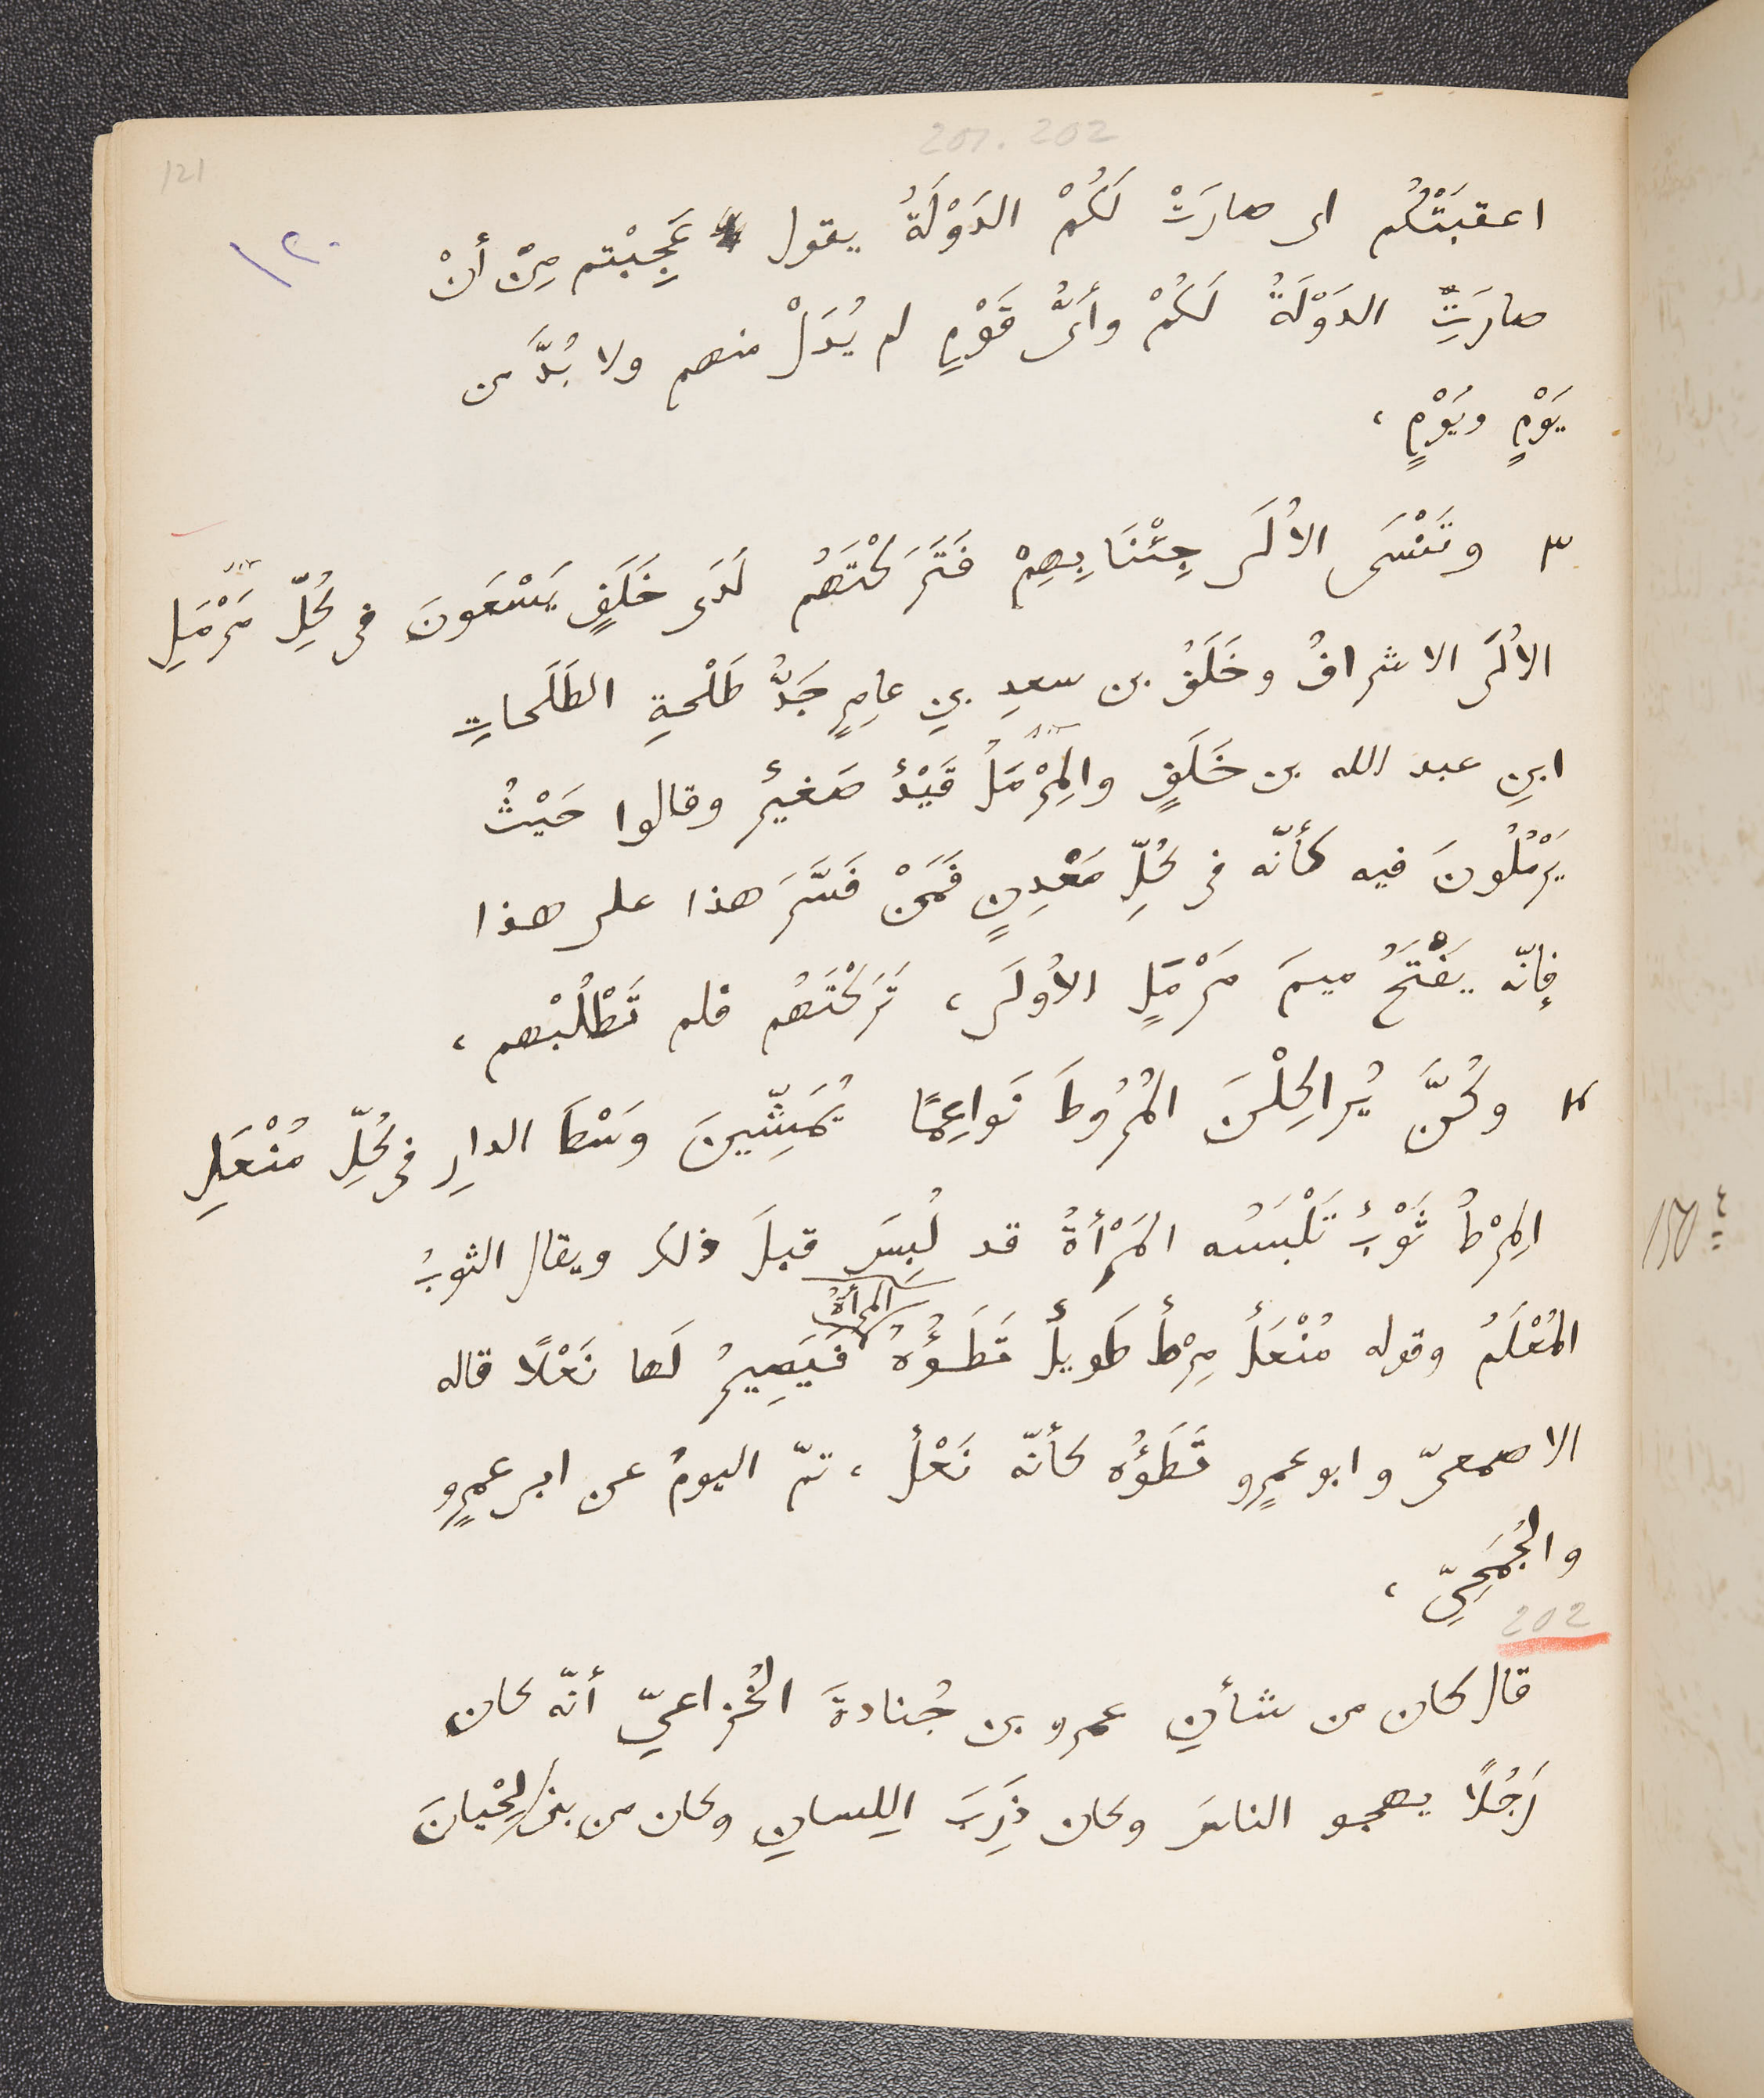 201. 202
121
١٢٠
اعقبَتْكُم اى صارَتْ لَكُمْ الدَوْلَةُ يقول عَجِبْتم مِنْ أنْ
صارَتِ الدَوْلَةُ لَكُمْ وأىُّ قَوْمٍ لم يُدَلْ منهم ولا بُدَّ من
يَوْمٍ ويَوْمٍ ،
٣ وتَنْسَى الأُلَى جِئْنَا بِهِمْ فَتَرَكْتَهُم لَدَى خَلَفٍ يَسْعَونَ فى كُلِّ مَرْمَلِ
الأُلَى الاشرافُ وخَلَفُ بن سعدِ بنِ عامِرٍ جَدُّ طَلْحةِ الطَلَحاتِ
ابنِ عبد الله بن خَلَفٍ والمِرْمَلُ قَيْدٌ صَغيرٌ وقالوا حَيْثُ
يَرْمُلُونَ فيه كأنّه فى كُلِّ مَعْدِنٍ فَمَنْ فَسَّرَ هذا على هذا
فإنّه يَفْتَحُ ميمَ مَرْمَلٍ الأُولَى ، تَرَكْتَهُم فلم تَطْلُبْهم ،
٤ وكُنَّ يُراكِلْنَ المُرُوطَ نَواعِمًا يُمَشِّينَ وَسْطَ الدارِ فى كُلِّ مُنْعَلِ
المِرْطُ ثَوْبٌ تَلْبَسُه المَرْأةُ قد لُبِسَ قبلَ ذلك ويقال الثوبُ
المُعْلَمُ وقوله مُنْعَلٌ مِرْطٌ طَويلٌ تَطَؤُهُ المرأةُ فيَصِيرُ لَها نَعْلًا قاله
الاصمعىّ وابو عمرٍو تَطَؤُه كأنّه نَعْلٌ ، تمّ اليومُ عن ابى عمرٍو
والجُمَحِىِّ ،
202
قال كان من شأنِ عمرو بن جُنادةَ الخُزاعىّ أنّه كان
رَجُلًا يهجو الناسَ وكان ذَرِبَ اللِسانِ وكان من بنى لِحْيانَ